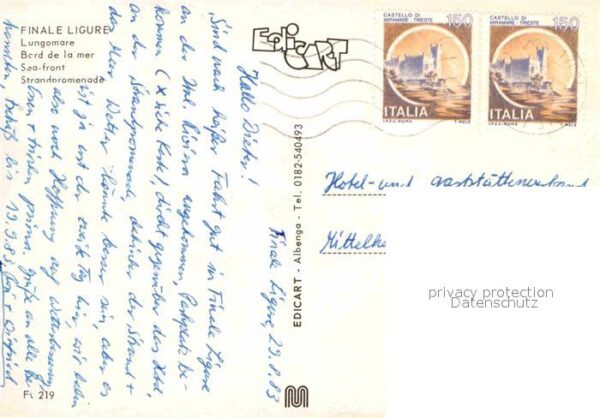 FINALE LIGURE
Lungomare
Bord de la mer
Sea-front
Strandpromenade
EdiCART
CASTELLO DI
MIRAMARE - TRIESTE
150
ITALIA
I.P.Z.S. - ROMA
T. MELE
CASTELLO DI
MIRAMARE - TRIESTE
150
ITALIA
I.P.Z.S. - ROMA
T. MELE
Finale Ligure, 29.8.83
Hallo
Sind nach Fahrt gut in Finale Ligure
an der Ital. Riviera angekommen, Parkplatz be-
kommen (X siehe Karte) direkt gegenüber des Hotel,
an der Strandpromenade, dahinter der Strand +
das Meer. Wetter könnte besser sein, aber es
ist ja erst der zweite Tag hier, wir haben
also noch Hoffnung auf Wetterbesserung.
Essen + Trinken prima. Grüße an alle
bis 13.9.83
EDICART - Albenga - Tel. 0182-540493
Hotel- und Gaststättenverband
privacy protection
Datenschutz
F. 219